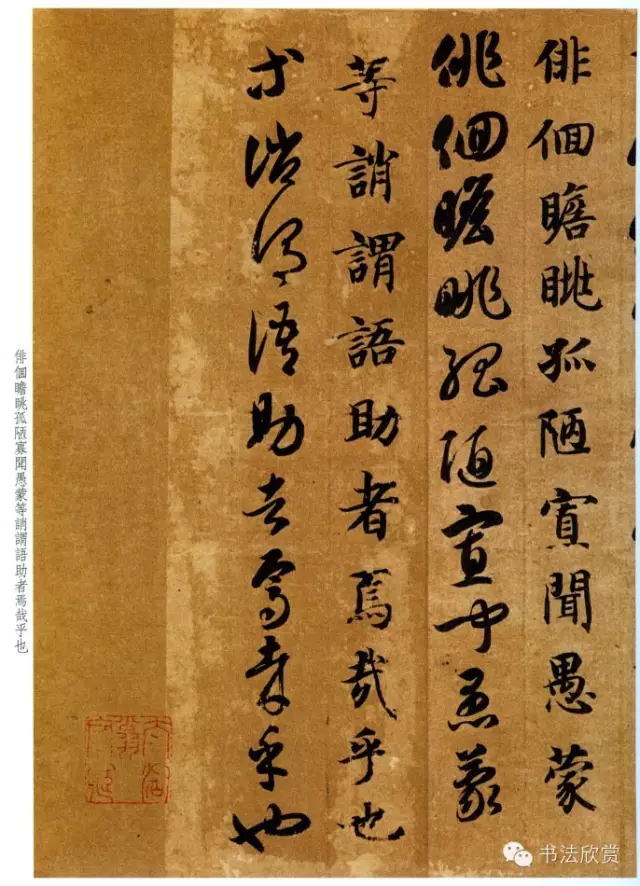 俳佪瞻眺孤陋寡聞愚蒙
俳佪瞻眺孤陋寡聞愚蒙
等誚謂語助者焉哉乎也
等誚謂語助者焉哉乎也
俳個瞻眺孤陋寡聞愚蒙等誚謂語助者焉哉乎也
书法欣赏